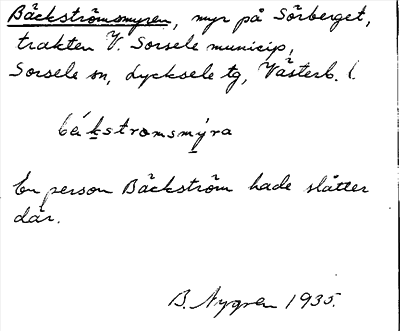 Bäckströmsmyren, myr på Sörberget,
trakten V. Sorsele municip,
Sorsele sn, Lycksele tg, Västerb. l.
bäkstromsmýra
En person Bäckström hade slåtter
där.
B. Nygren 1935.